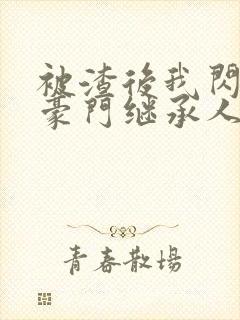 被渣後我閃
豪門继承人
青春散場